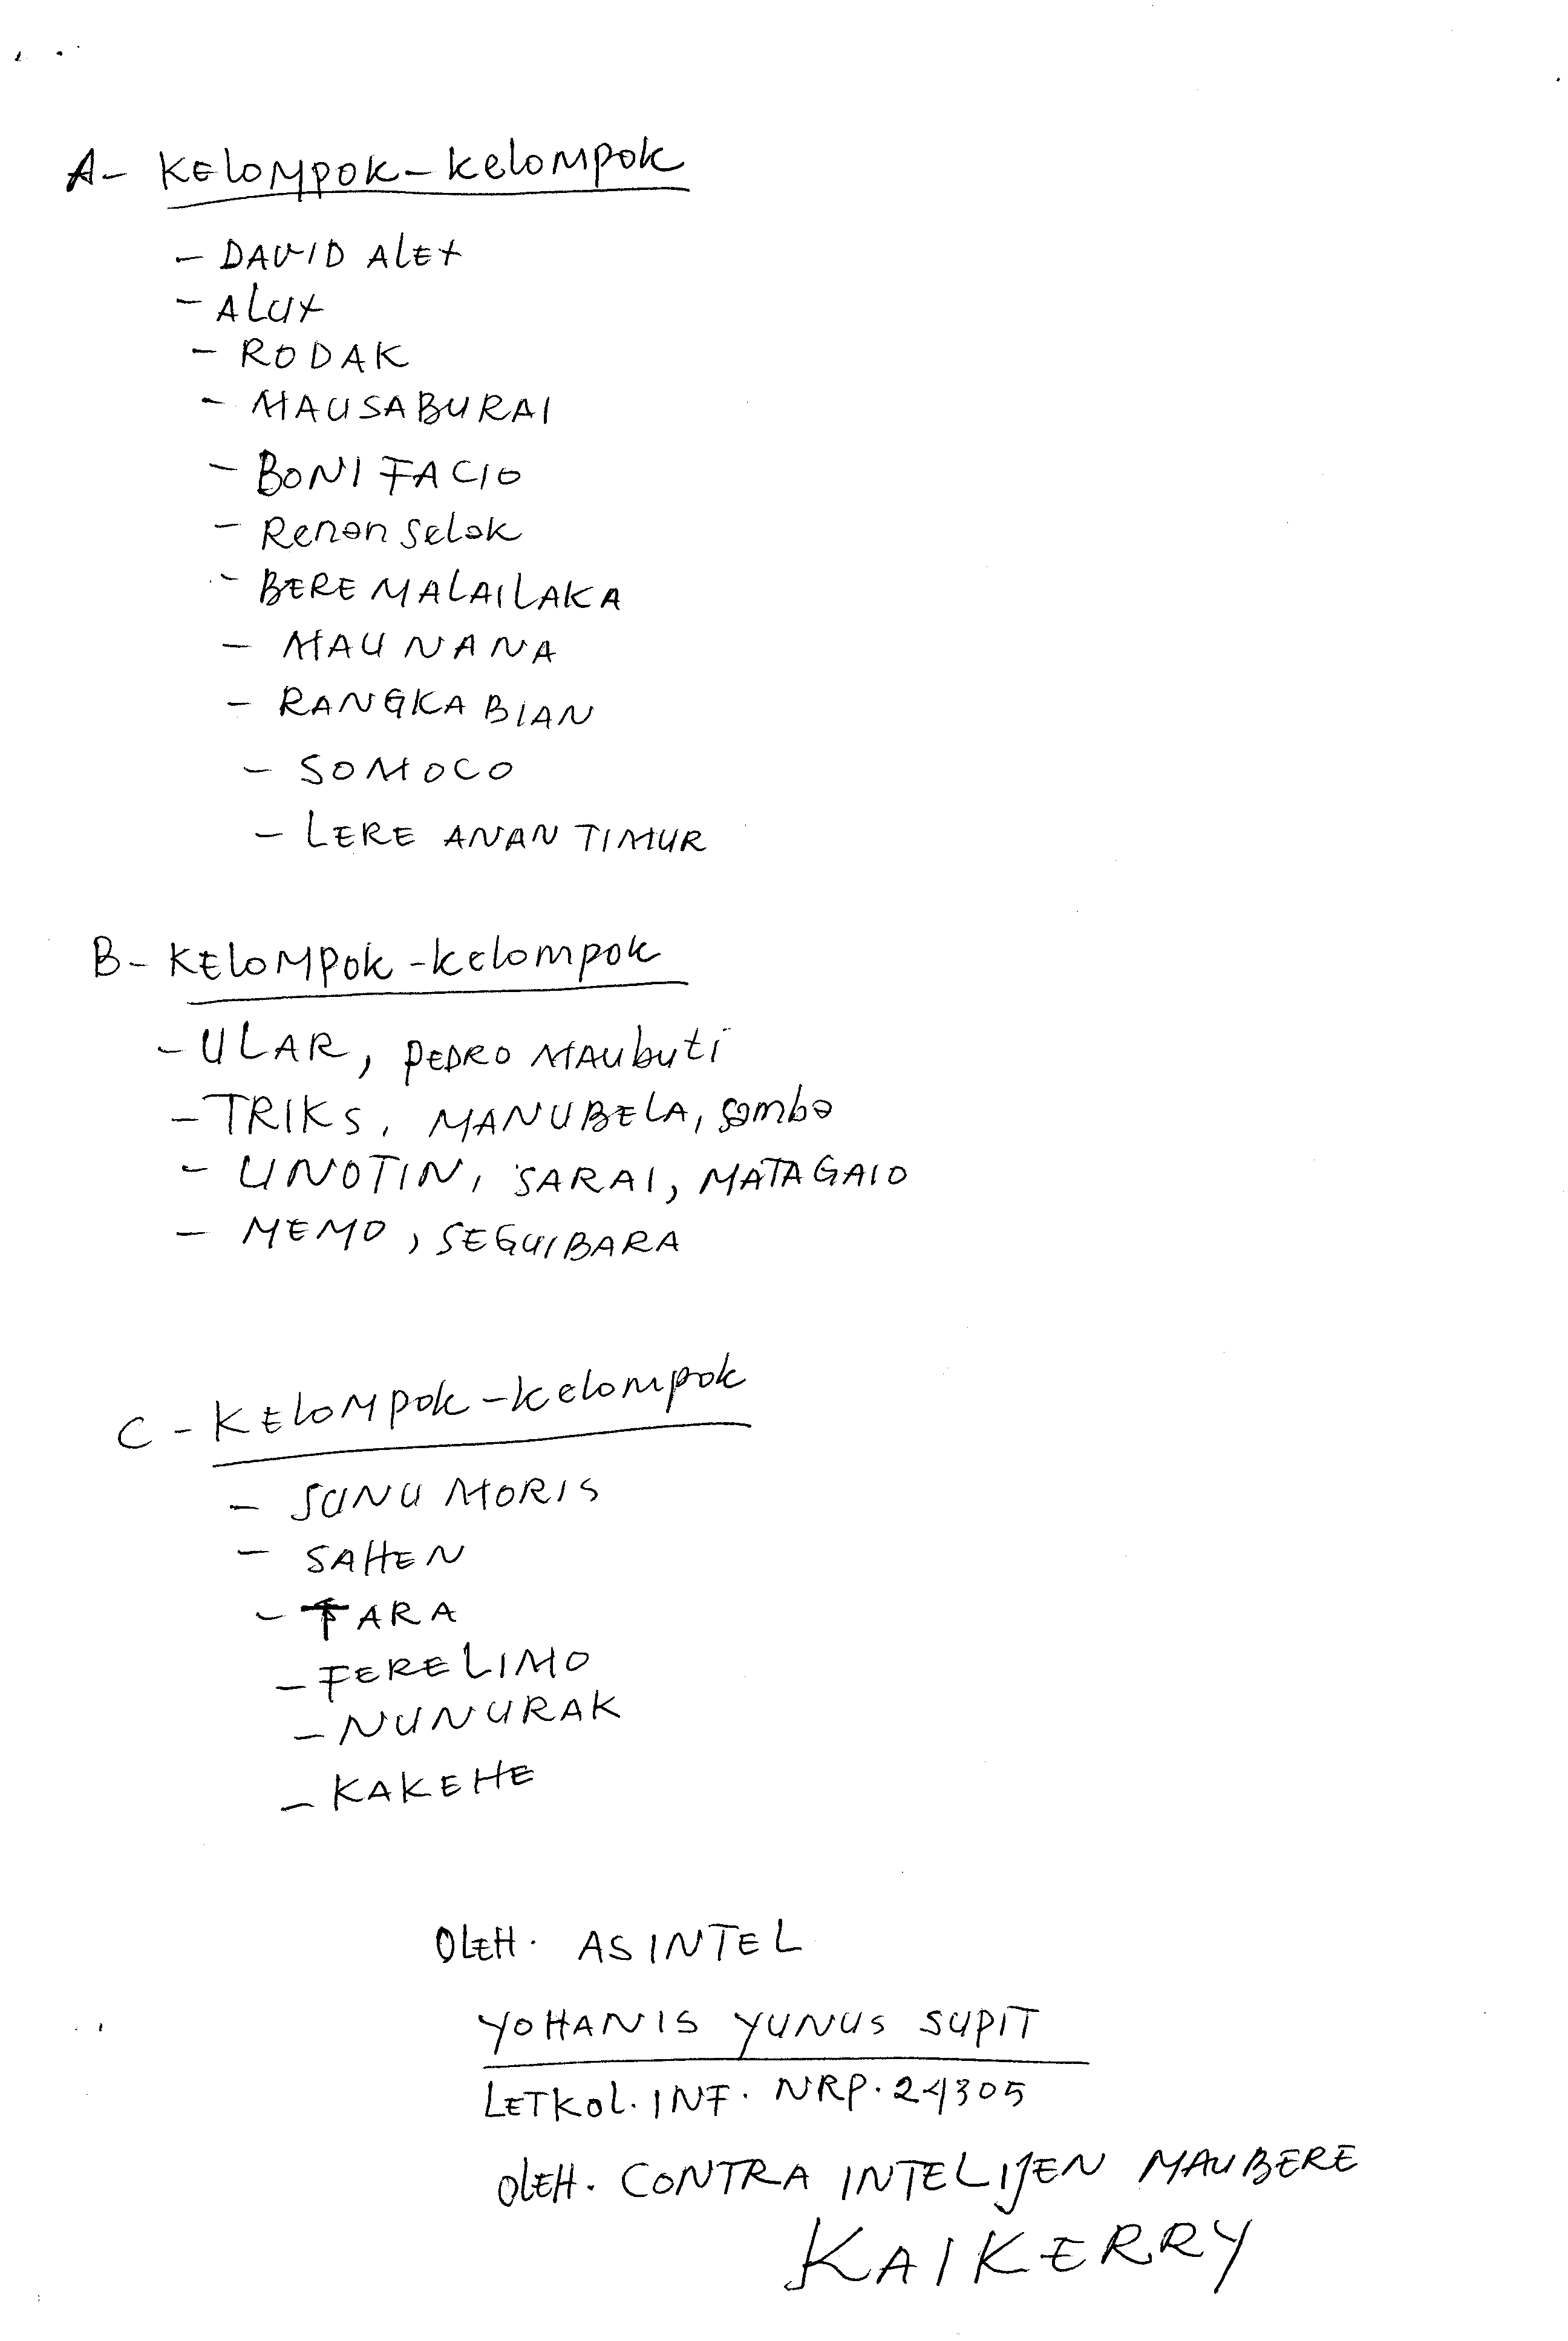 A- KELOMPOK-KELOMPOK
- DAVID ALEX
- ALUX
- RODAK
- MAUSABURAI
- BONIFACIO
- Renan Selak
- BERE MALAILAKA
- MAU NANA
- RANGKABIAN
- SOMOCO
- LERE ANAN TIMUR
B- KELOMPOK-KELOMPOK
- ULAR, PEDRO MAUbuti
- TRIKS, MANUBELA, Samba
- LINOTIN, SARAI, MATAGAIO
- MEMO, SEGUIBARA
C- KELOMPOK-KELOMPOK
- SUNU MORIS
- SAHEN
- TARA
- FERELIMO
- NUNURAK
- KAKEHE
OLEH. ASINTEL
YOHANIS YUNUS SUPIT
LETKOL. INF. NRP. 24305
OLEH. CONTRA INTELIJEN MAUBERE
KAIKERRY